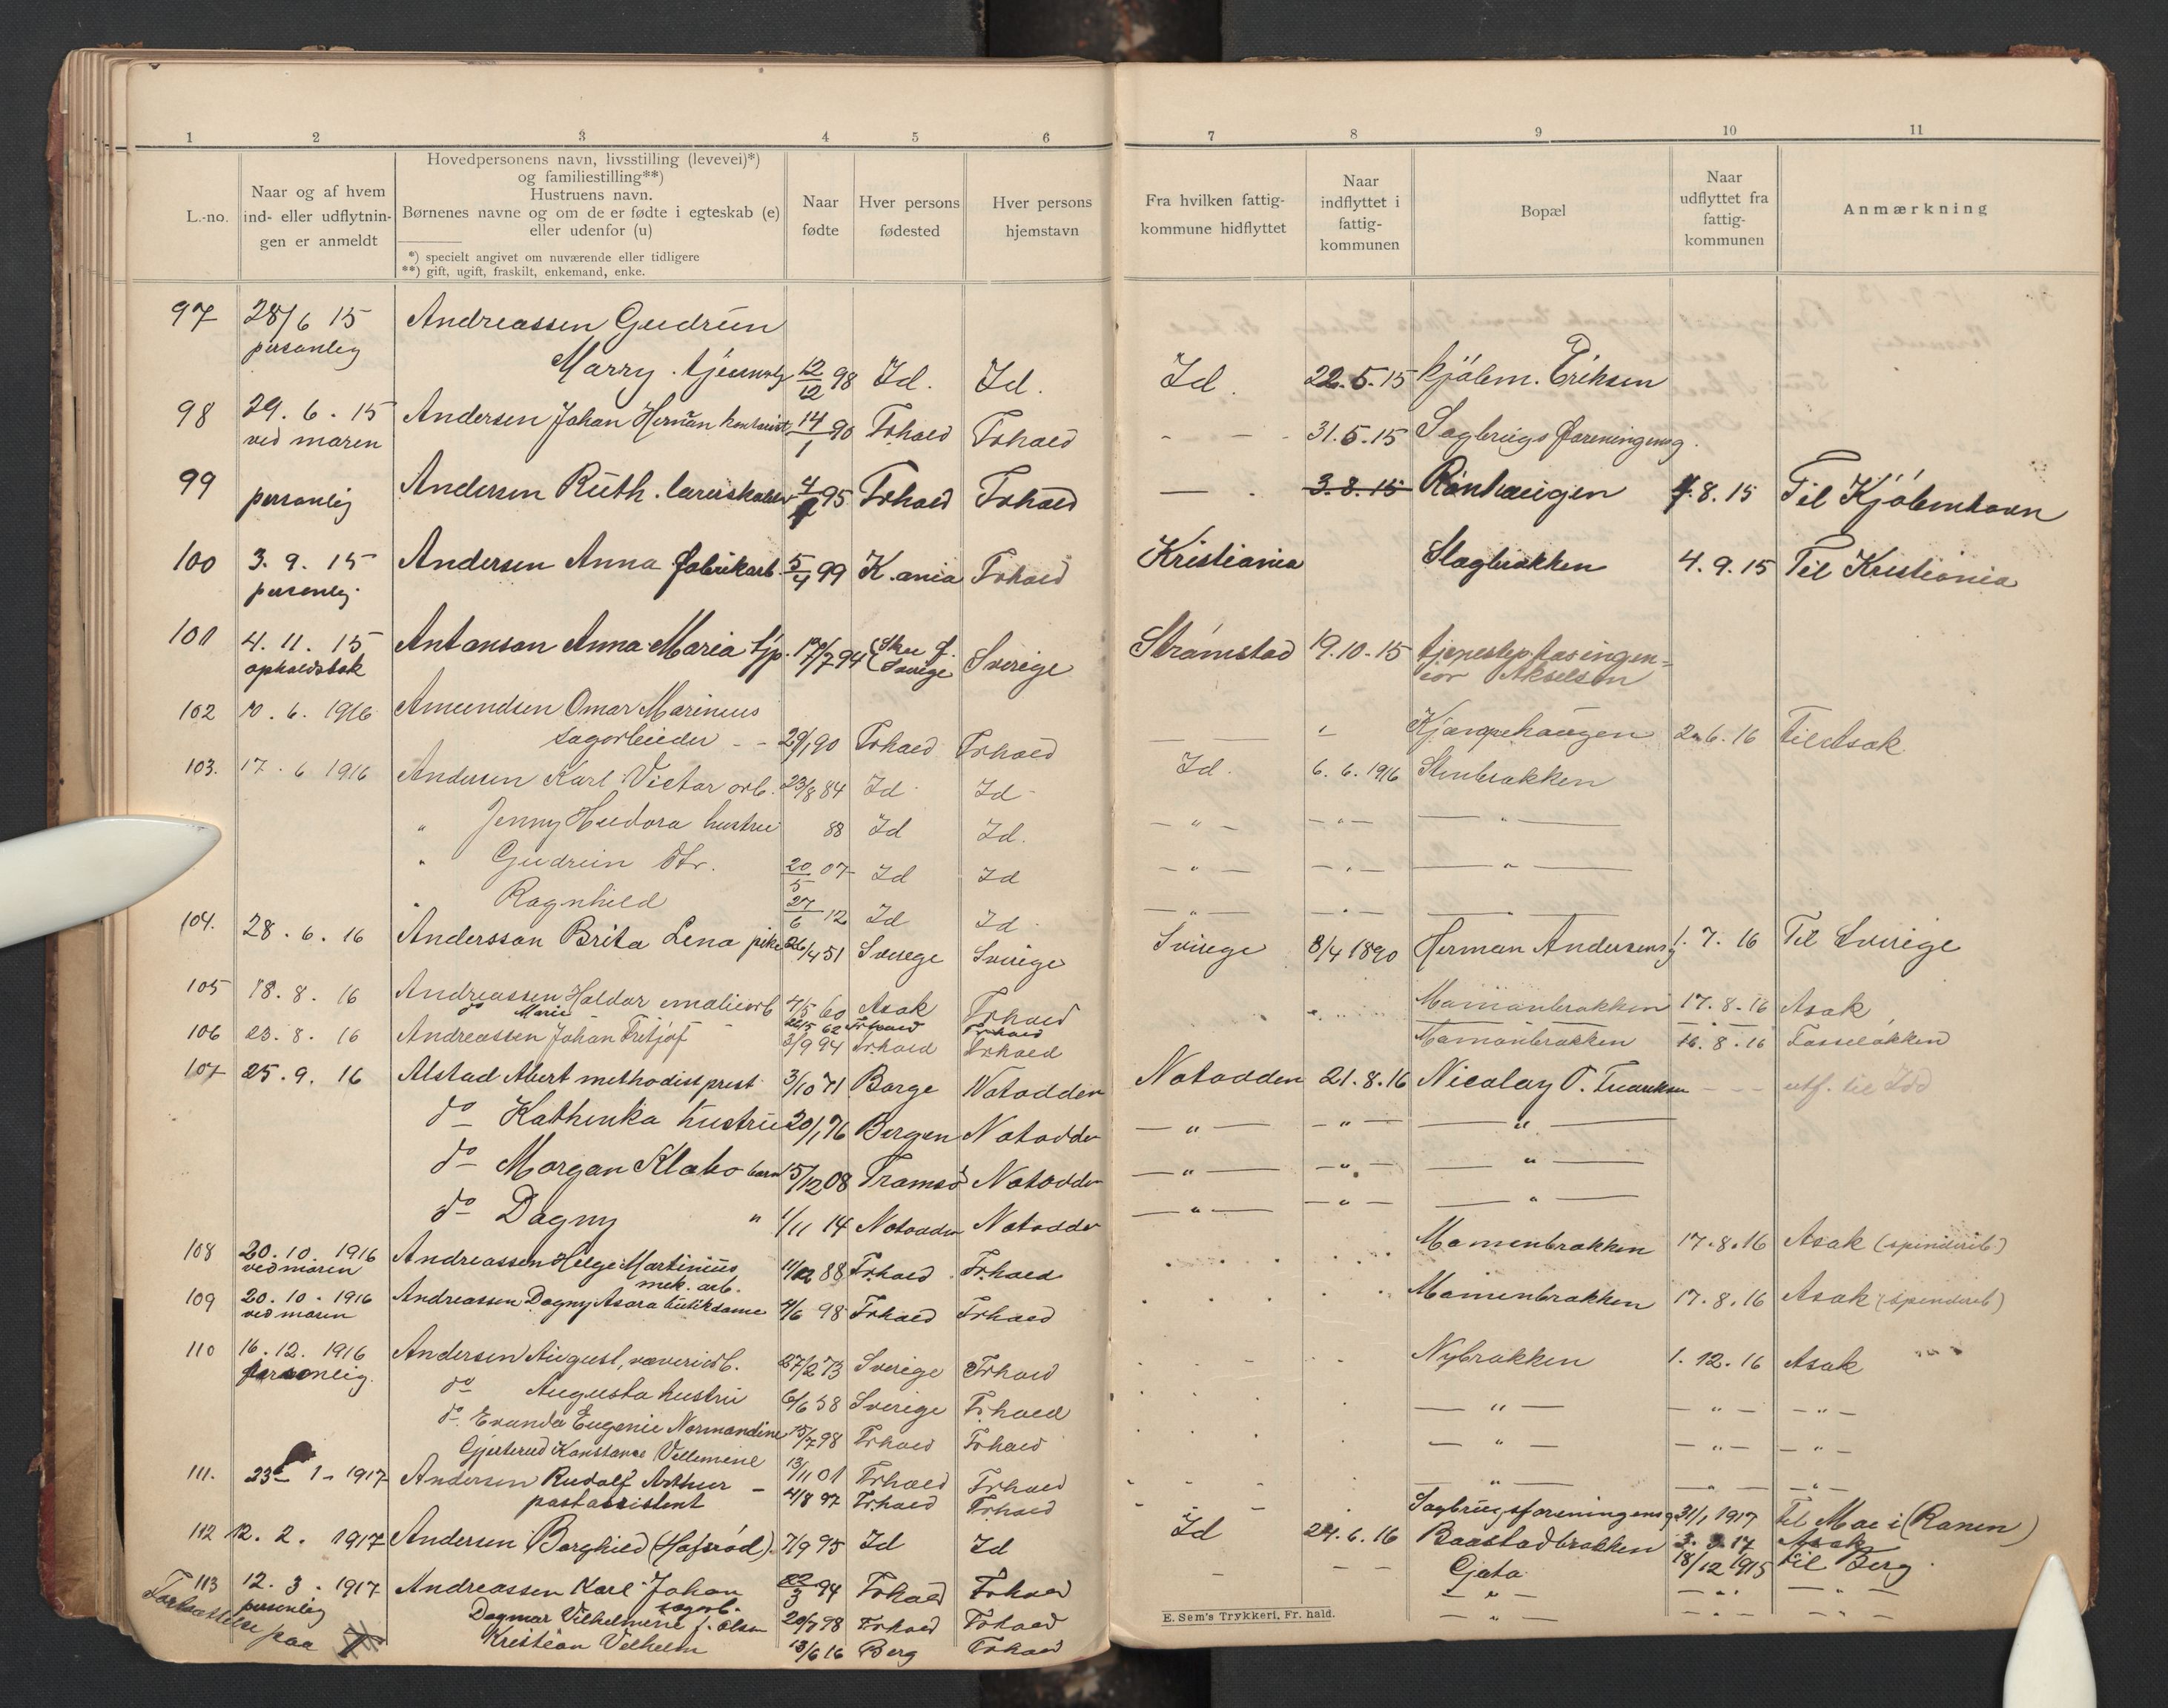 1 2 3 4 5 6 7 8 9 10 11
L.-no.
Naar og af hvem
ind- eller udflytnin-
gen er anmeldt
Hovedpersonens navn, livsstilling (levevei)*)
og familiestilling**)
Hustruens navn.
Børnenes navne og om de er fødte i egteskab (e)
eller udenfor (u)
*) specielt angivet om nuværende eller tidligere
**) gift, ugift, fraskilt, enkemand, enke.
Naar
fødte
Hver persons
fødested
Hver persons
hjemstavn
Fra hvilken fattig-
kommune hidflyttet
Naar
indflyttet i
fattig-
kommunen
Bopæl
Naar
udflyttet fra
fattig-
kommunen
Anmærkning
97 28/6 15 Andreassen Gudrun
personlig Marry. 12/12 98 Id. Id. Id. 22.5.15 Kjøbm. Eriksen
98 29.6.15 Andersen Johan Herman 14/1 90 Frhald Frhald - - - 31.5.15 Sagbrugsforeningensg.
ved moren
99 personlig Andersen Ruth. 95 Frhald Frhald — . 3.8.15 Rønhaugen 8.15 Til Kjøbenhavn
100 3.9.15 Andersen Anna fabrikarb. 5/4 99 K.ania Frhald Kristiania Slagbrakken 4.9.15 Til Kristiania
personlig
101 4.11.15 Antonson Anna Maria tjp. 17/7 94 Skee (Sverige Sverige Strømstad 19.10.15
opholdsbok Akselsen
102 10.6.1916 Amundsen Omar Marinius
sagarbeider - - 29/1 90 Frhald Frhald — — " Kjæmpehaugen 2.6.16 Til Asak
103. 17.6 1916 Andersen Karl Victor arb. 23/8 84 Id Id Id. 6.6.1916 Stenbrakken
" Jenny Hudora hustru 88 Id Id. — " — — " — — " —
" Gudrun dtr. 20/5 07 Id Id — " — — " — — " —
" Ragnhild 27/6 12 Id Id — " — — " —
104. 28.6.16 Andersson Brita Lena pike 26/4 51 Sverige Sverige Sverige 8/4 1890 Herman Andersensg 1.7.16 Til Sverige
105 18.8.16 Andreassen Haldor 4/5 60 Asak Frhald Mamenbrakken 17.8.16 Asak
do Marie 62 Frhald Frhald
106 23.8.16 Andreassen Johan Fritjof 3/9 94 Frhald Frhald Mamenbrakken 16.8.16
107 25.9.16 Alstad Abert methodistprest 3/10 71 Borge Notodden Notodden 21.8.16 Nicolay O. utf. til Idd
do Kathinka hustru 20/1 76 Bergen Notodden — " — — " — — " —
do Morgan Klabo barn 15/12 08 Tromsø Notodden — " — — " — — " —
do Dagny " 1/11 14 Notodden Notodden — " — — " — — " —
108 20.10.1916 Andreassen Helge Martinius 11/12 88 Frhald Frhald Mamenbrakken 17.8.16 Asak (spinderib)
ved moren mek. arb.
109 20.10.1916 Andreassen Dagny Asora butikdame 4/6 98 Frhald Frhald Mamenbrakken 17.8.16 Asak (spinderib)
ved moren
110 16.12.1916 Andersen August, væveriarb. 27/2 73 Sverige Frhald Nybrakken 1.12.16 Asak
personlig.
do Augusta hustru 6/6 58 Sverige Frhald — " — — " — — " —
do. Evanda Eugenie Normandine 15/7 98 Frhald Frhald — " — — " — — " —
Gjesterud Konstance Villemine 13/11 01 Frhald Frhald — " — — " — — " —
111. 23 1 - 1917 Andersen Rudolf Arthur - 4/8 97 Frhald Frhald Sagbrugsforeningensg 31/1 1917 Til Mo i (Ranen)
postassistent
112 12.2.1917 Andersen Borghild (Hafsrød). 7/9 95 Id Id Id 24.6.16 Baastadbrakken Asak
113 12.3.1917 Andreassen Karl Johan 22/3 94 Frhald Frhald - - - Gjata 18/12 1915 til Berg
personlig sagarb.
Dagmar Vilhelmine f. Olsen 20/7 98 Frhald Frhald — " — — " — — " —
Kristian Vilhelm 13/6 16 Berg Frhald — " — — " — — " —
Fortsættelse paa
E. Sem's Trykkeri, Fr. hald.